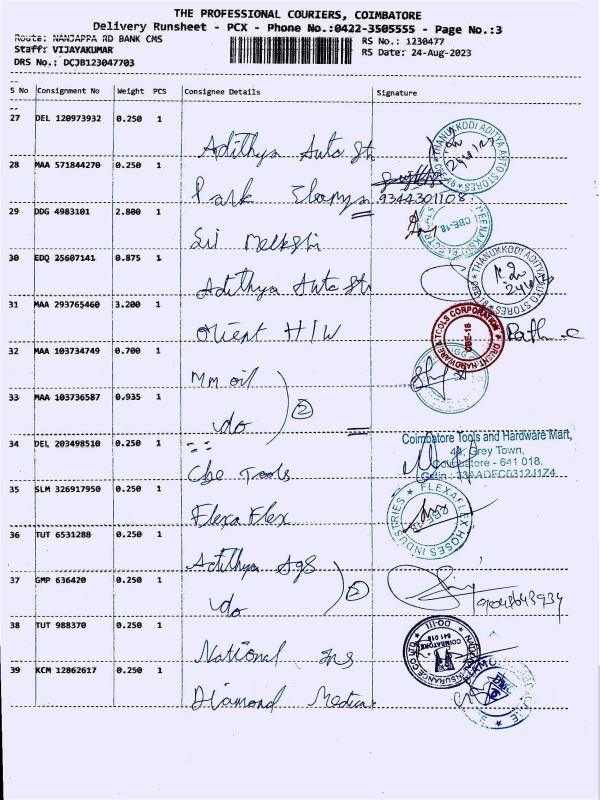 THE PROFESSIONAL COURIERS, COIMBATORE
Delivery Runsheet - PCX - Phone No.:0422-3505555 - Page No.:3
Route: NANJAPPA RD BANK CMS
RS No.: 1230477
Staff: VIJAYAKUMAR
RS Date: 24-Aug-2023
DRS No.: DCJB123047703
S No Consignment No Weight PCS Consignee Details Signature
27 DEL 120973932 0.250 1
Adithya Auto St
THANUKKODI ADITYA AUTO STORES
28 MAA 571844270 0.250 1
Park
9344301108
29 DDG 4983101 2.800 1
Sri
CBE-18
30 EDQ 25607141 0.875 1
Adithya Auto St
THANUKKODI ADITYA AUTO STORES
31 MAA 293765460 3.200 1
Orient H/W
ORIENT HARDWARE & TOOLS CORPORATION
CBE-18
32 MAA 103734749 0.700 1
Mm oil
33 MAA 103736587 0.935 1
do
2
34 DEL 203498510 0.250 1
Cbe Tools
Coimbatore Tools and Hardware Mart,
44, Grey Town,
Coimbatore - 641 018.
35 SLM 326917950 0.250 1
Flexa Flex
FLEXAFLEX HOSES INDUSTRIES
36 TUT 6531288 0.250 1
Adithya Ags
37 GMP 636420 0.250 1
do
2
38 TUT 988370 0.250 1
National Ins
COIMBATORE
641 018
39 KCM 12862617 0.250 1
Diamond Medica